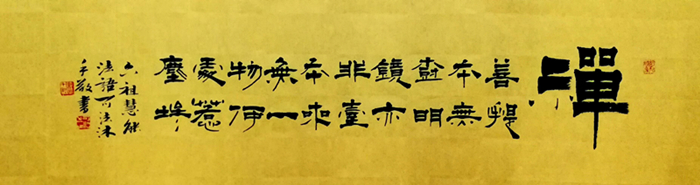 禪
菩提
本無
樹明
鏡亦
非臺
本來
無一
物何
處惹
塵埃
六祖慧能
法語可法沐
手敬書